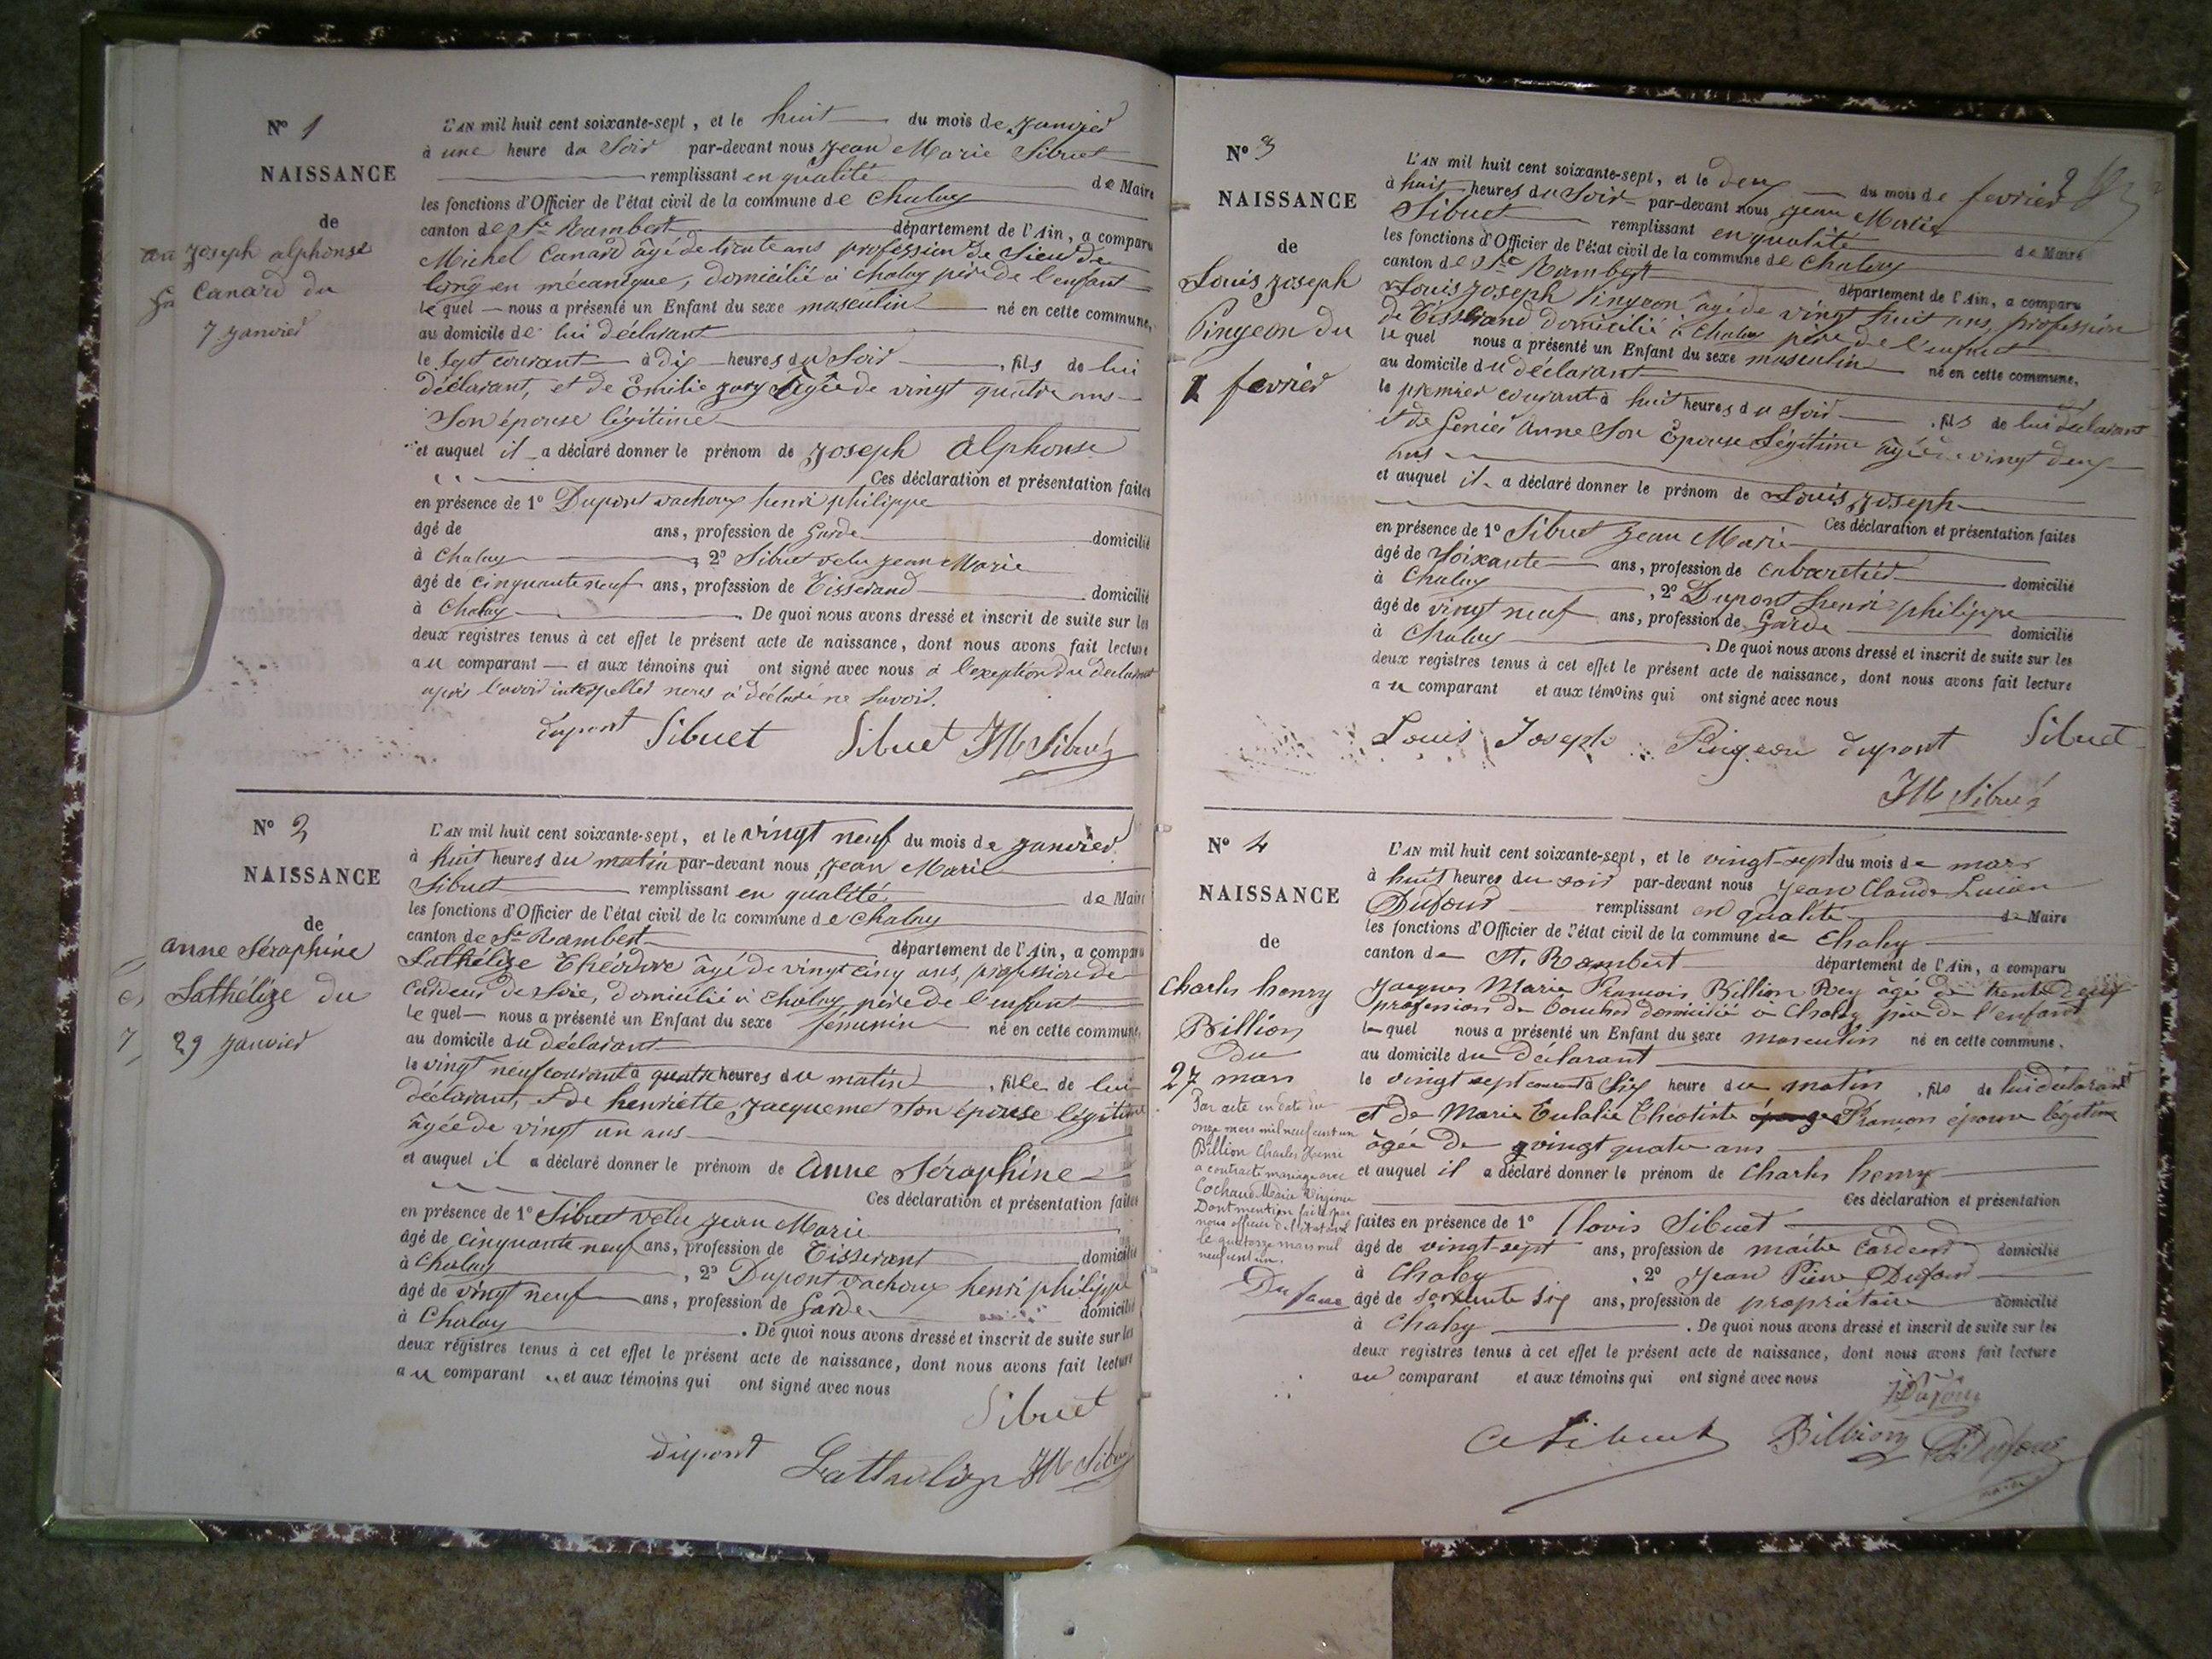 N° 1
NAISSANCE
de
Joseph alphonse
Canard du
7 janvier
L'AN mil huit cent soixante-sept, et le huit du mois de janvier
à une heure du Soir par-devant nous Jean Marie Sibuet
remplissant en qualité de Maire
les fonctions d'Officier de l'état civil de la commune de Chaley
canton de St Rambert département de l'Ain, a comparu
Michel Canard âgé de trente ans profession de Sieur de
long en mécanique, domicilié à Chaley père de l'enfant
le quel nous a présenté un Enfant du sexe masculin né en cette commune,
au domicile de lui déclarant
le sept courant à dix heures du Soir, fils de lui
déclarant, et de Emilie Jory âgée de vingt quatre ans
Son épouse légitime
et auquel il a déclaré donner le prénom de Joseph Alphonse
Ces déclaration et présentation faites
en présence de 1° Dupont vachoux henri philippe
âgé de ans, profession de Garde domicilié
à Chaley, 2° Sibuet velu Jean Marie
âgé de cinquante neuf ans, profession de Tisserand domicilié
à Chaley. De quoi nous avons dressé et inscrit de suite sur les
deux registres tenus à cet effet le présent acte de naissance, dont nous avons fait lecture
au comparant et aux témoins qui ont signé avec nous à l'exception du déclarant
après l'avoir interpeller nous a déclaré ne Savoir.
dupont Sibuet Sibuet JM Sibuet
N° 2
NAISSANCE
de
Anne Séraphine
Lathélize du
29 janvier
L'AN mil huit cent soixante-sept, et le vingt neuf du mois de janvier
à huit heures du matin par-devant nous Jean Marie
Sibuet remplissant en qualité de Maire
les fonctions d'Officier de l'état civil de la commune de Chaley
canton de St Rambert département de l'Ain, a comparu
Lathélize Théodore âgé de vingt cinq ans, profession de
Cardeur de Soie, domicilié à Chaley père de l'enfant
le quel nous a présenté un Enfant du sexe féminin né en cette commune,
au domicile du déclarant
le vingt neuf courant à quatre heures du matin, fille de lui
déclarant, et de henriette Jacquemet Son épouse légitime
âgée de vingt un ans
et auquel il a déclaré donner le prénom de Anne Séraphine
Ces déclaration et présentation faites
en présence de 1° Sibuet velu Jean Marie
âgé de cinquante neuf ans, profession de Tisserant domicilié
à Chaley, 2° Dupont vachoux henri philippe
âgé de vingt neuf ans, profession de Garde domicilié
à Chaley. De quoi nous avons dressé et inscrit de suite sur les
deux registres tenus à cet effet le présent acte de naissance, dont nous avons fait lecture
au comparant et aux témoins qui ont signé avec nous
Sibuet
dupont Lathelize JM Sibuet
N° 3
NAISSANCE
de
Louis Joseph
Pingeon du
1 fevrier
L'AN mil huit cent soixante-sept, et le deux du mois de fevrier
à huit heures du Soir par-devant nous Jean Marie
Sibuet remplissant en qualité de Maire
les fonctions d'Officier de l'état civil de la commune de Chaley
canton de St Rambert département de l'Ain, a comparu
Louis Joseph Pingeon âgé de vingt huit ans, profession
de Tisserand domicilié à Chaley père de l'enfant
le quel nous a présenté un Enfant du sexe masculin né en cette commune,
au domicile du déclarant
le premier courant à huit heures du Soir, fils de lui déclarant
et de Anne Son Epouse Légitime âgée de vingt deux
ans
et auquel il a déclaré donner le prénom de Louis Joseph
Ces déclaration et présentation faites
en présence de 1° Sibuet Jean Marie
âgé de Soixante ans, profession de Cabaretier domicilié
à Chaley, 2° Dupont henri philippe
âgé de vingt neuf ans, profession de Garde domicilié
à Chaley. De quoi nous avons dressé et inscrit de suite sur les
deux registres tenus à cet effet le présent acte de naissance, dont nous avons fait lecture
au comparant et aux témoins qui ont signé avec nous
Louis Joseph Pingeon dupont Sibuet
JM Sibuet
N° 4
NAISSANCE
de
Charles henry
Billion
du
27 mars
Par acte en date du
onze mars mil neuf cent un
Billion Charles Henri
a contracté mariage avec
Cochaud Marie Virginie
Dont mention faite par
nous officier de l'état civil
le quatorze mars mil
neuf cent un.
Dufour
L'AN mil huit cent soixante-sept, et le vingt-sept du mois de mars
à huit heures du soir par-devant nous Jean Claude Lucien
Dufour remplissant en qualité de Maire
les fonctions d'Officier de l'état civil de la commune de Chaley
canton de St. Rambert département de l'Ain, a comparu
Jacques Marie François Billion Rey âgé de trente deux
profession de domicilié à Chaley père de l'enfant
le quel nous a présenté un Enfant du sexe masculin né en cette commune.
au domicile du déclarant
le vingt sept courant à six heure du matin, fils de lui déclarant
et de Marie Eulalie Théotiste Françon épouse légitime
âgée de vingt quatre ans
et auquel il a déclaré donner le prénom de Charles henry
Ces déclaration et présentation
faites en présence de 1° Clovis Sibuet
âgé de vingt-sept ans, profession de maître Cardeur domicilié
à Chaley, 2° Jean Pierre Dufour
âgé de soixante six ans, profession de propriétaire domicilié
à Chaley. De quoi nous avons dressé et inscrit de suite sur les
deux registres tenus à cet effet le présent acte de naissance, dont nous avons fait lecture
au comparant et aux témoins qui ont signé avec nous
Dufour
C Sibuet Billion Dufour